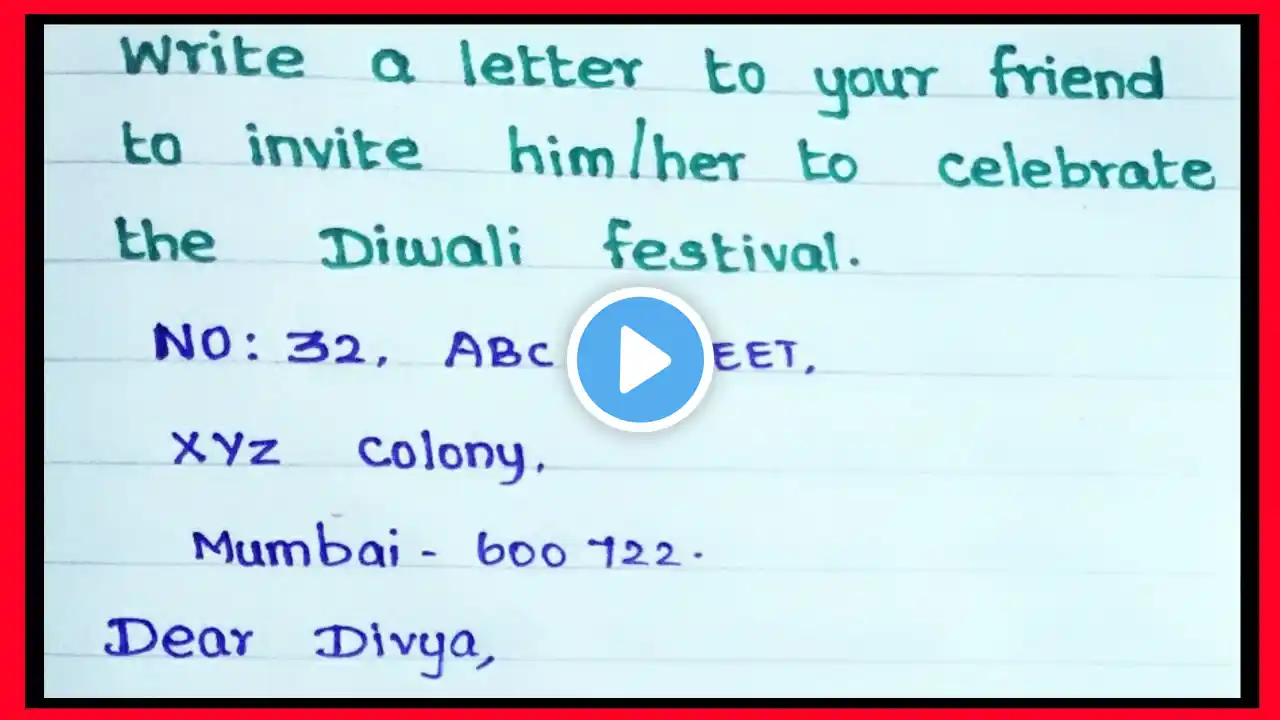 Write a letter to your friend
to invite him/her to celebrate
the Diwali festival.
NO: 32, ABC EET,
XYZ colony,
Mumbai - 600 722.
Dear Divya,